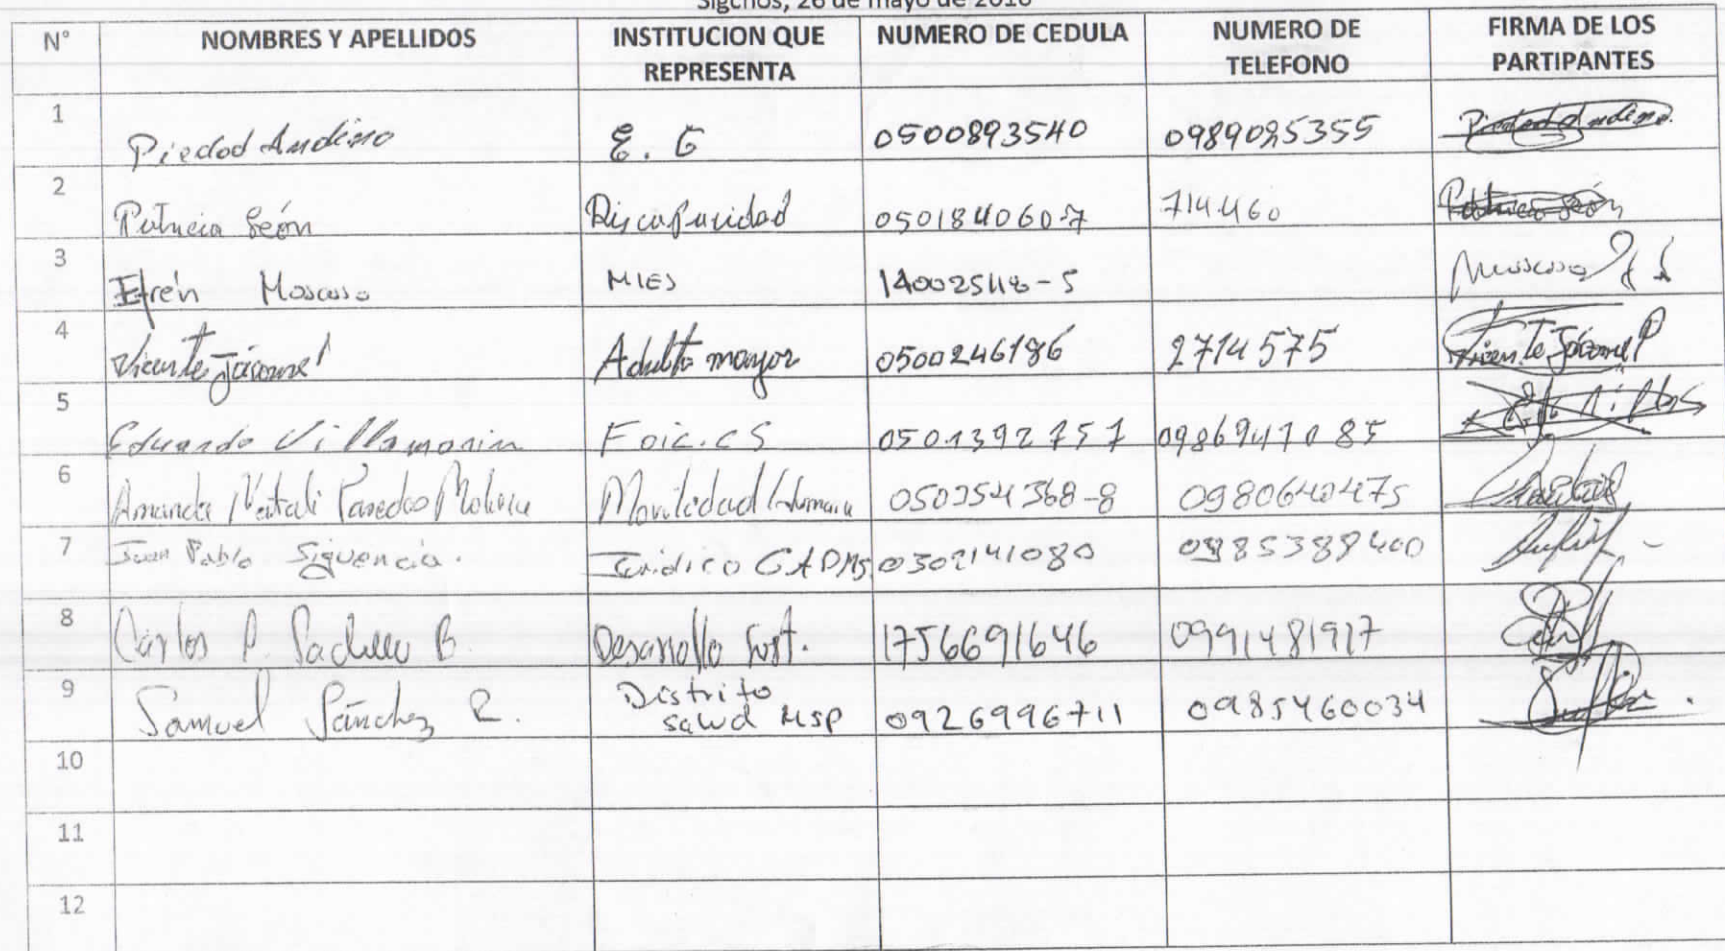 Sigchos, 26 de mayo de 2016
N° NOMBRES Y APELLIDOS INSTITUCION QUE REPRESENTA NUMERO DE CEDULA NUMERO DE TELEFONO FIRMA DE LOS PARTIPANTES
1 Piedad Andino E. G 0500893540 0989095355 Piedad Andino
2 Patricia León Discapacidad 050184060-7 714460 Patricia León
3 Efrén Moscoso MIES Moscoso
4 Vicente Jácome Adulto mayor 0500246186 2714575 Vicente Jácome P
5 Eduardo Villamarin 0501392757 0986947085
6 Amanda Natali Paredes Molina Movilidad Humana 050354368-8 0980640475
7 Juan Pablo Siguencia. Juridico GADMS 0302141080 0985389400
8 Carlos P. B. Desarrollo Sost. 1756691646 0991481917
9 Samuel Sánchez R. Distrito salud MSP 0926996711 0985460034
10
11
12